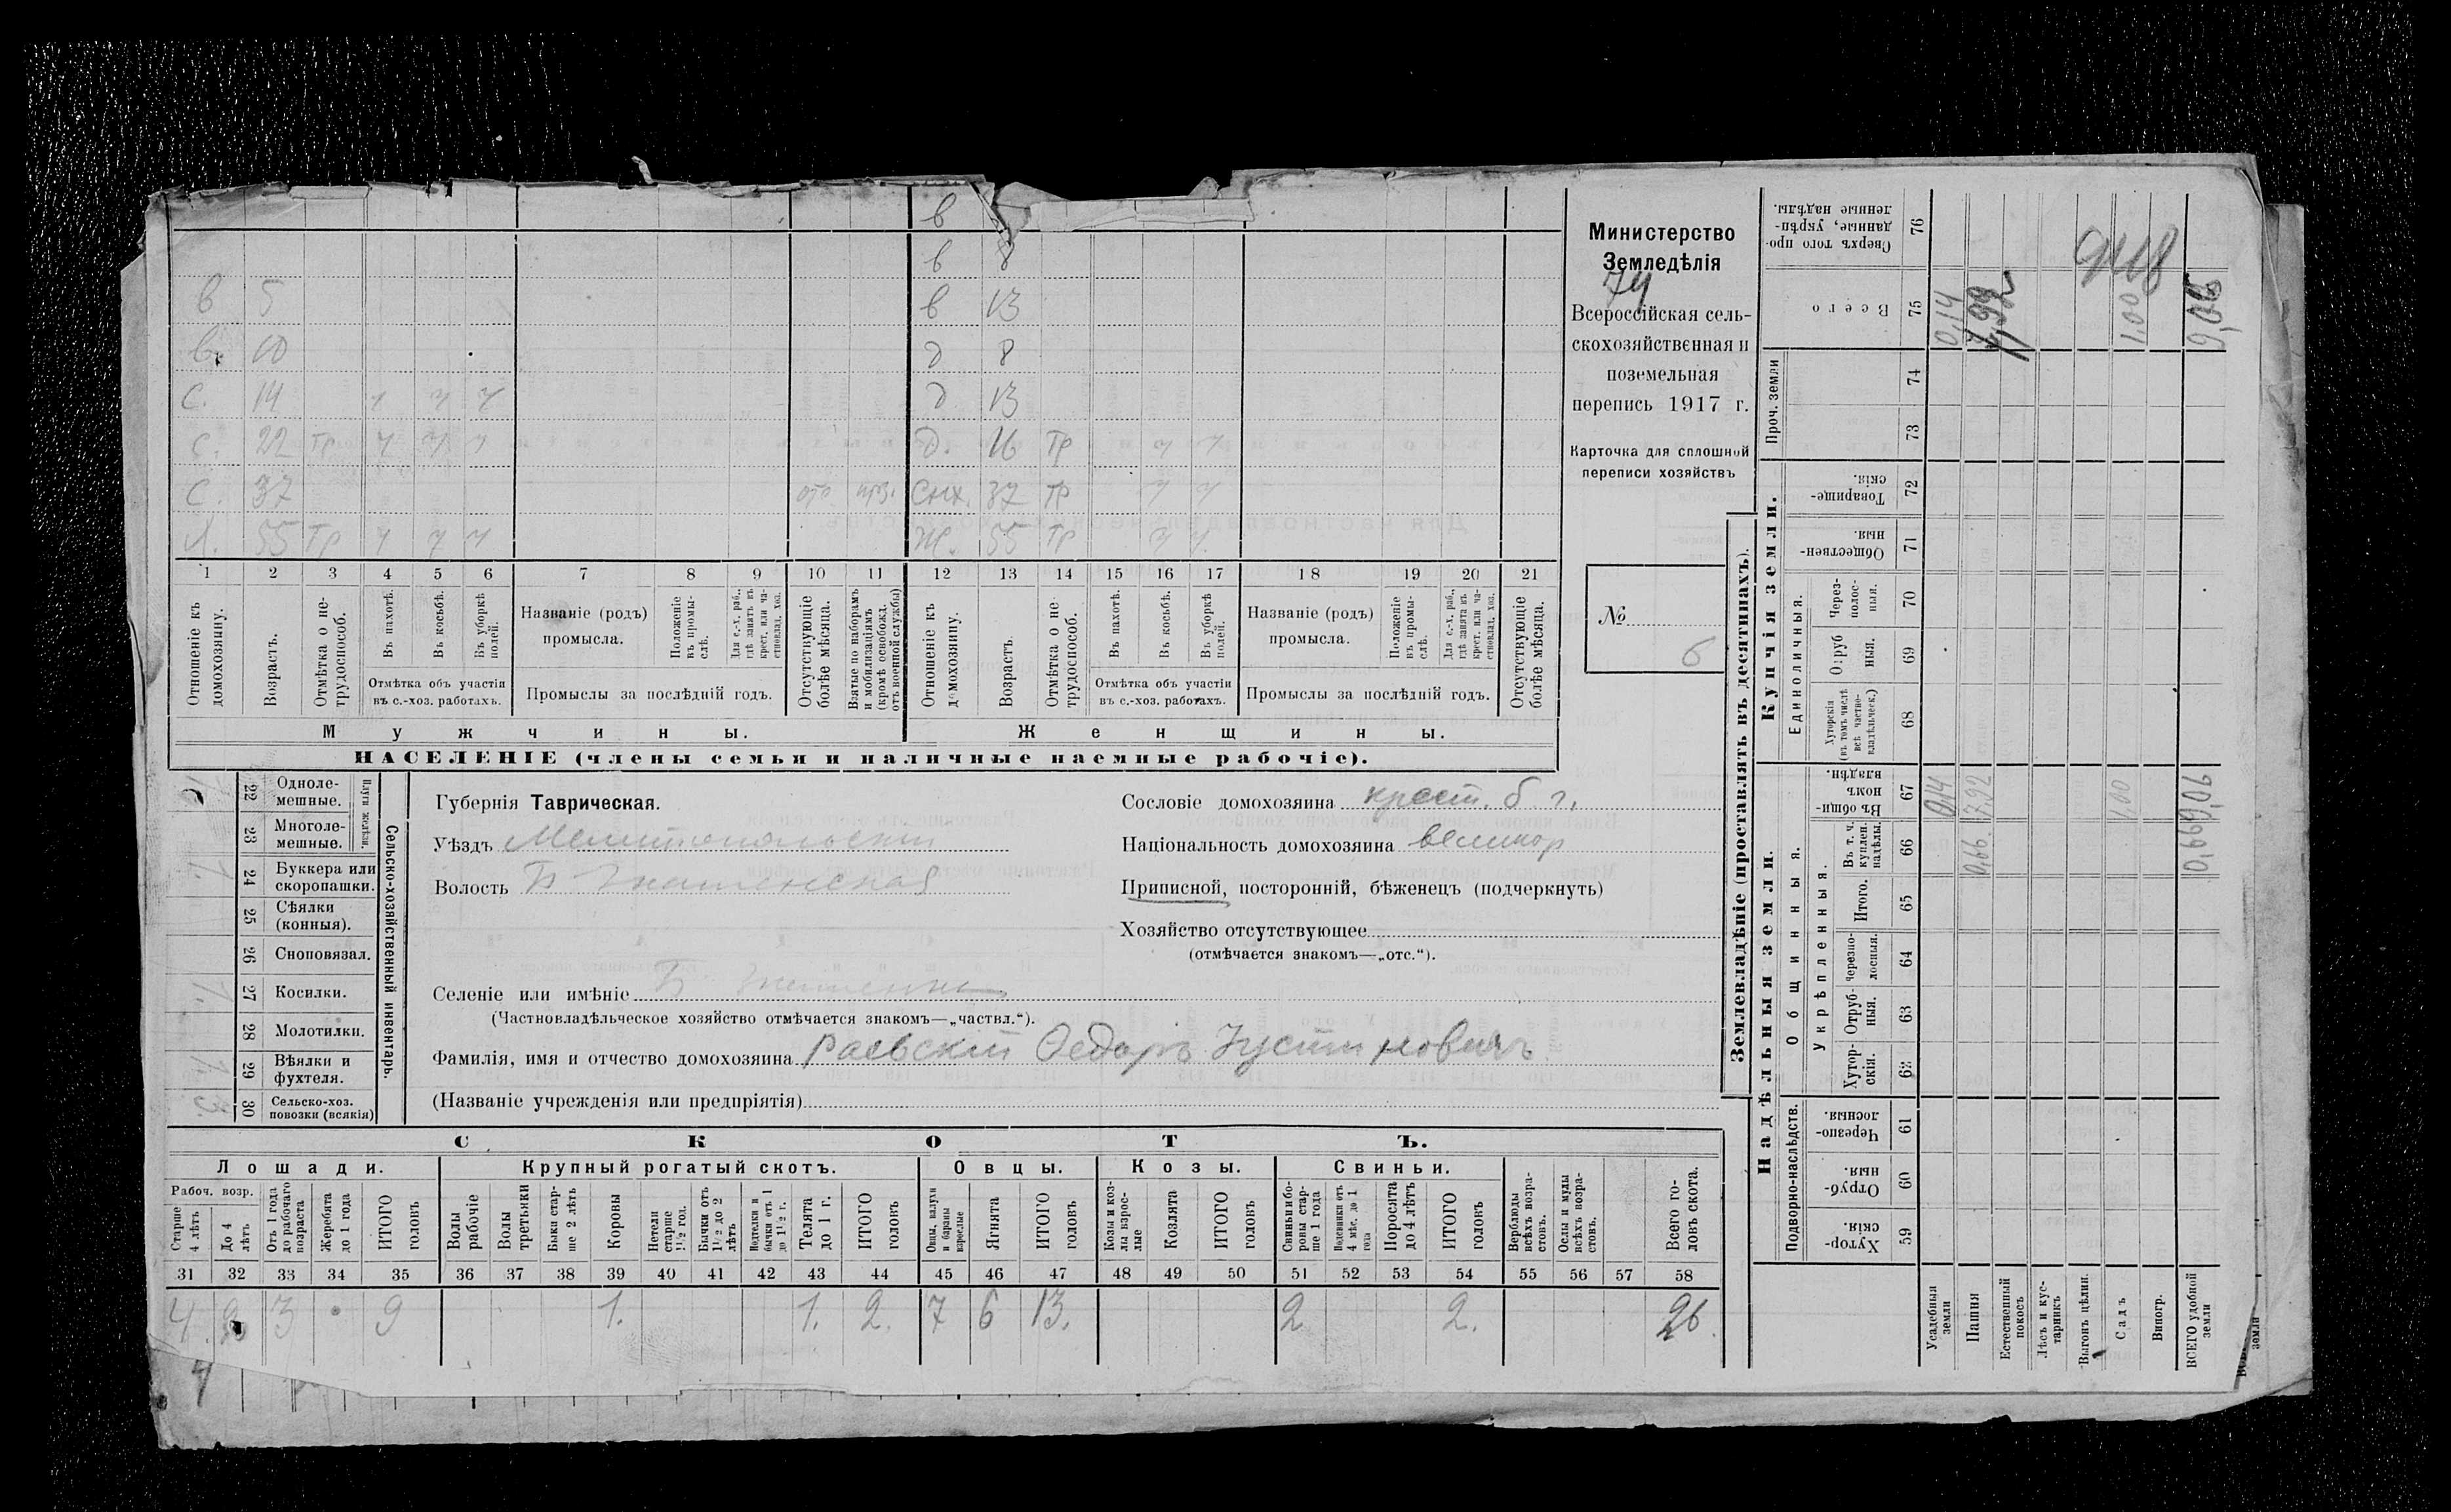 в
в 8
в 5 в 13
в. 10 д 8
с. 14 ч ч д. 13
с. 22 тр ч ч ч д. 16 тр ч ч
с. 37 снх. 37 тр ч ч
55 тр ч ч ч ж. 55 тр ч ч
1 2 3 4 5 6 7 8 9 10 11 12 13 14 15 16 17 18 19 20 21
Отношеніе къ домохозяину.
Возрастъ.
Отмѣтка о не-
трудоспособ.
Въ пахотѣ.
Въ косьбѣ.
Въ уборкѣ
полей.
Отмѣтка объ участіи
въ с.-хоз. работахъ.
Названіе (родъ)
промысла.
Положеніе
въ промы-
слѣ.
Для с.-х. раб.,
гдѣ занятъ въ
крест. или ча-
стновлад. хоз.
Промыслы за послѣдній годъ.
Отсутствующіе
болѣе мѣсяца.
Взятые по наборамъ
и мобилизаціямъ
(кромѣ освобожд.
отъ военной службы)
Отношеніе къ
домохозяину.
Возрастъ
Отмѣтка о не
трудоспособ.
Въ пахотѣ.
Въ косьбѣ.
Въ уборкѣ
полей.
Отмѣтка объ участіи
въ с.-хоз. работахъ.
Названіе (родъ)
промысла.
Положеніе
въ промы-
слѣ.
Для с.-х. раб.,
гдѣ занята въ
крест. или ча-
стновлад. хоз.
Промыслы за послѣдній годъ.
Отсутствующіе
болѣе мѣсяца.
Мужчины.
Женщины.
НАСЕЛЕНІЕ (члены семьи и наличные наемные рабочіе).
Министерство
Земледѣлія
74
Всероссійская сель-
скохозяйственная и
поземельная
перепись 1917 г.
Карточка для сплошной
переписи хозяйствъ
№
6
22 Одноле-
мешные.
23 Многоле-
мешные.
Плуги желѣзн.
24 Буккера или
скоропашки.
25 Сѣялки
(конныя).
26 Сноповязал.
27 Косилки.
28 Молотилки.
29 Вѣялки и
фухтеля.
30 Сельско-хоз.
повозки (всякія)
Сельско-хозяйственный инвентарь.
Губернія Таврическая.
Уѣздъ Мелитопольскій
Волость Б Знаменская
Сословіе домохозяина крест. б г.
Національность домохозяина великор
Приписной, посторонній, бѣженецъ (подчеркнуть)
Хозяйство отсутствующее
(отмѣчается знакомъ—„отс.“).
Селеніе или имѣніе Б Знаменка
(Частновладѣльческое хозяйство отмѣчается знакомъ—„частвл.“).
Фамилія, имя и отчество домохозяина Раевскій Федоръ Іустиновичъ
(Названіе учрежденія или предпріятія)
СКОТЪ.
Лошади. Крупный рогатый скотъ. Овцы. Козы. Свиньи.
Рабоч. возр.
Старше
4 лѣтъ
До 4
лѣтъ
Отъ 1 года
до рабочаго
возраста
Жеребята
до 1 года
ИТОГО
головъ
Волы
рабочіе
Волы
третьяки
Быки стар-
ше 2 лѣтъ
Коровы
Нетели
старше
1½ год.
Бычки отъ
1½ до 2
лѣтъ
Подтелки и
бычки отъ 1
до 1½ г.
Телята
до 1 г.
ИТОГО
головъ
Овцы, валухи
и бараны
взрослые
Ягнята
ИТОГО
головъ
Козы и коз-
лы взрос-
лые
Козлята
ИТОГО
головъ
Свиньи и бо-
ровы стар-
ше 1 года
Подсвинки отъ
4 мѣс. до 1
года
Поросята
до 4 лѣтъ
ИТОГО
головъ
Верблюды
всѣхъ возра-
стовъ.
Ослы и мулы
всѣхъ возра-
стовъ.
Всего го-
ловъ скота.
31 32 33 34 35 36 37 38 39 40 41 42 43 44 45 46 47 48 49 50 51 52 53 54 55 56 57 58
4 3 9 1. 1. 2. 7 6 13. 2 2. 26.
Землевладѣніе (проставлять въ десятинахъ).
Купчія земли.
Надѣльныя земли.
Сверхъ того про-
данные, укрѣп-
ленные надѣлы.
76
Всего 75
0,14 7,92 1,00 9,06
Проч. земли
74
73
Товарище-
скія.
72
Обществен-
ныя.
71
Единоличныя.
Через-
полос-
ныя.
70
Отруб
ныя.
69
Хуторскія
(въ томъ числѣ
всѣ частно-
владѣльческ.)
68
Общинныя.
Въ общи-
номъ
владѣн.
67
0,14 7,92 1,00 9,06
Въ т. ч.
куплен.
надѣлы.
66
0,66 0,66
Укрѣпленныя.
Итого. 65
Черезпо-
лосныя.
64
Отруб-
ныя.
63
Хутор-
скія.
62
Подворно-наслѣдств.
Черезпо-
лосныя.
61
Отруб-
ныя.
60
Хутор-
скія.
59
Усадебныя
земли
Пашня
Естественный
покосъ
Лѣсъ и кус-
тарникъ
Выгонъ цѣлин.
Садъ
Виногр.
ВСЕГО удобной
земли
земли